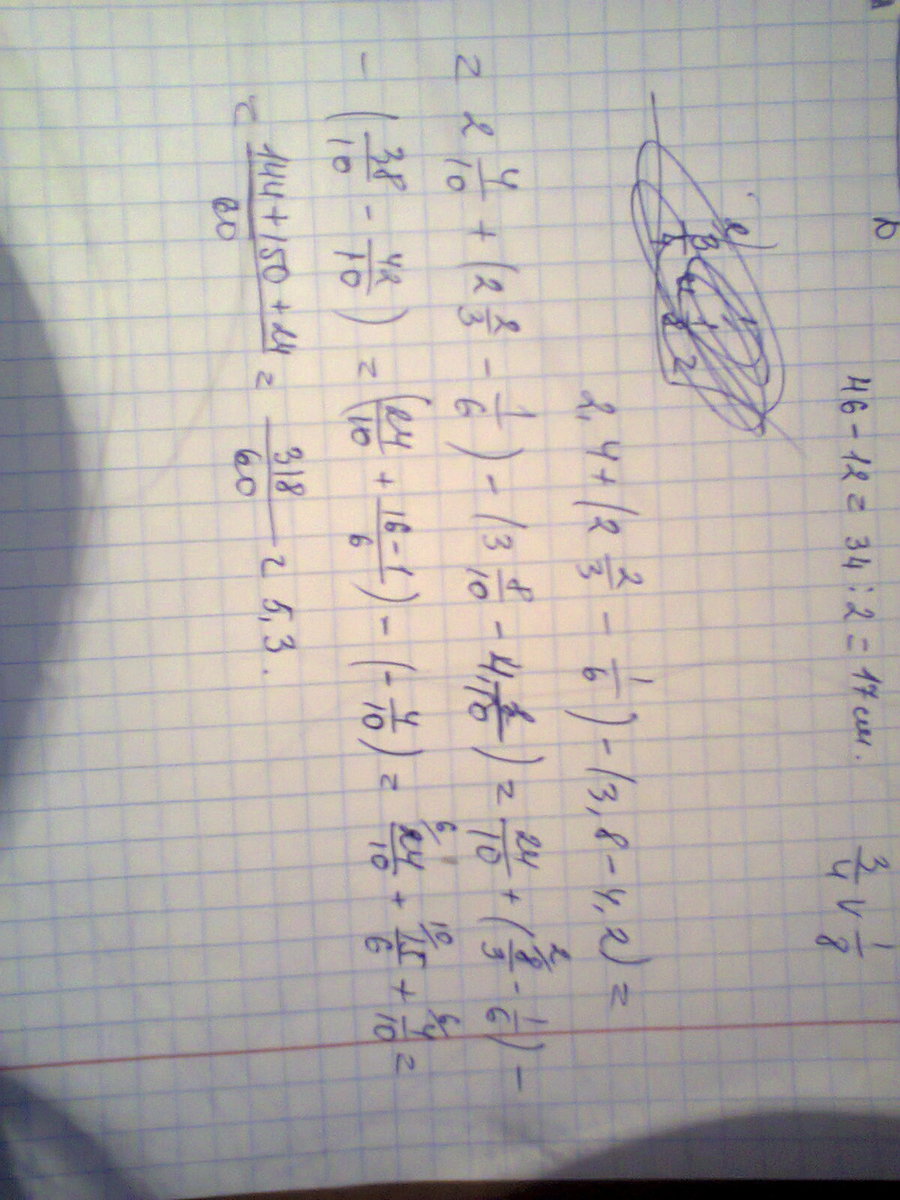 46-12=34:2=17см.
3/4 v 1/8
2,4+(2 2/3 - 1/6)-(3,8-4,2)=
= 2 4/10 + (2 2/3 - 1/6) - (3 8/10 - 4 2/10) = 24/10 + (8/3 - 1/6) -
- (38/10 - 42/10) = (24/10 + 16-1/6) - (-4/10) = 24/10 + 15/6 + 4/10 =
= 144+150+24/60 = 318/60 = 5,3.